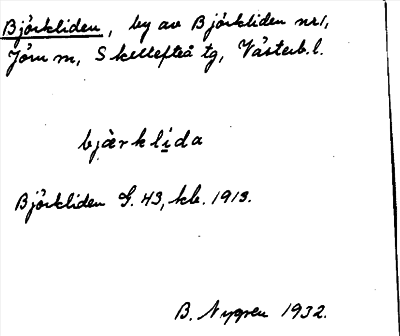 Björkliden, by av Björkliden nr 1,
Jörn m, Skellefteå tg, Västerb. l.
bjärklida
Björkliden G. 43, kb. 1913.
B. Nygren 1932.